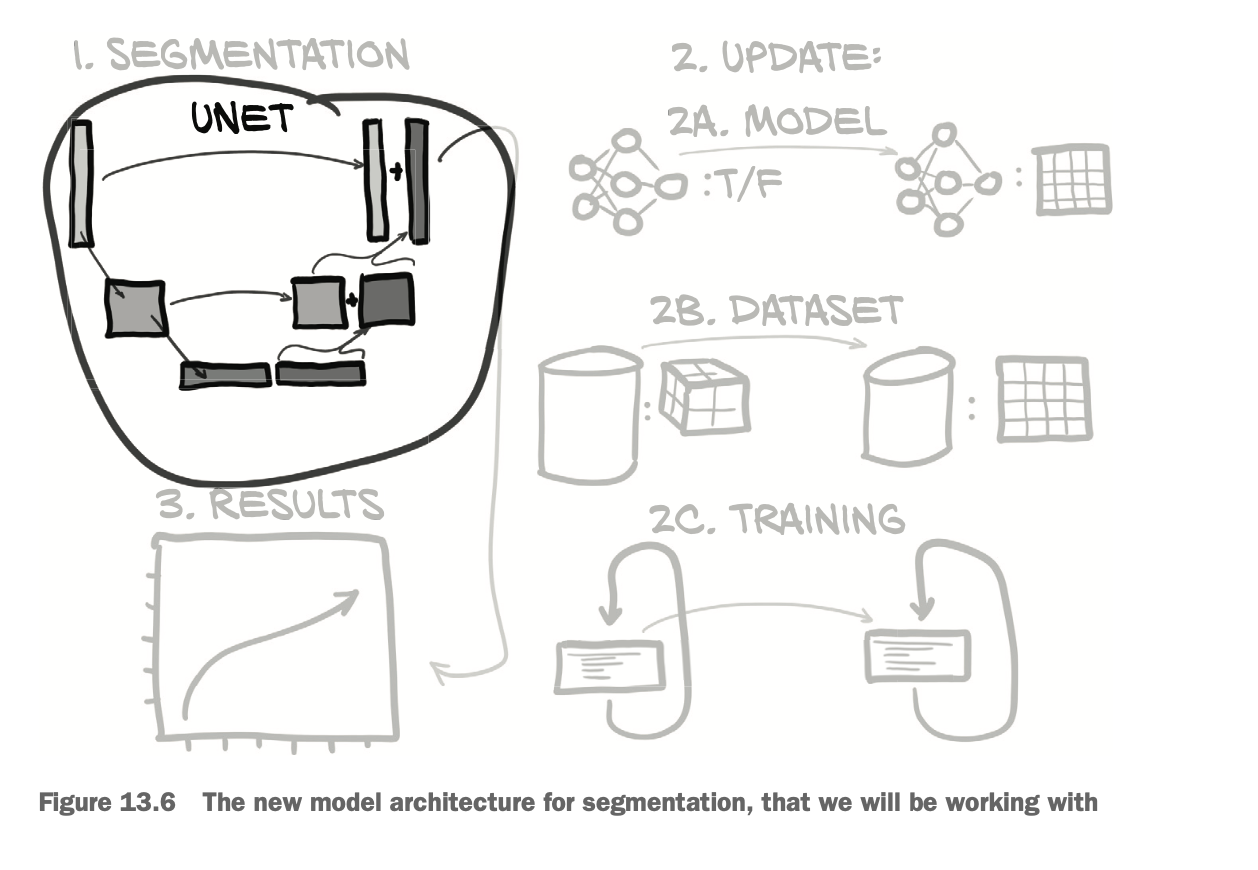 1. SEGMENTATION
UNET
+
+
2. UPDATE:
2A. MODEL
:T/F
:
2B. DATASET
:
:
3. RESULTS
2C. TRAINING
Figure 13.6 The new model architecture for segmentation, that we will be working with